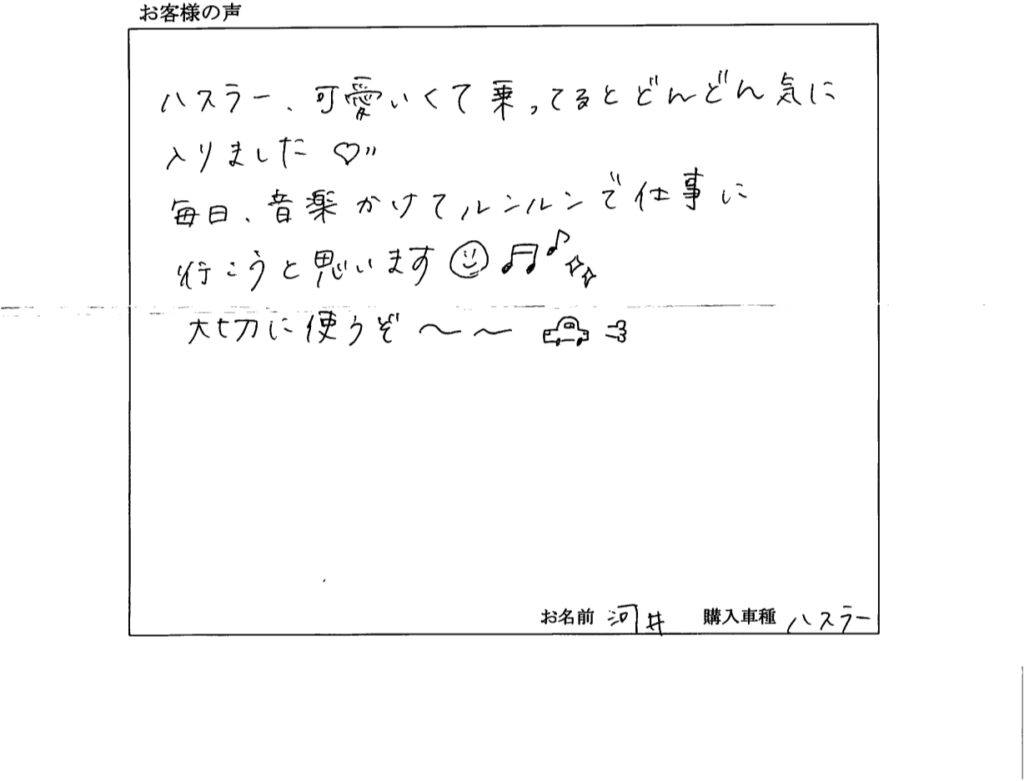 お客様の声
ハスラー、可愛いくて乗ってるとどんどん気に
入りました♡〃
毎日、音楽かけてルンルンで仕事に
行こうと思います☺♫♪✧✧
大切に使うぞ〜〜 🚗💨
お名前 河井 購入車種 ハスラー